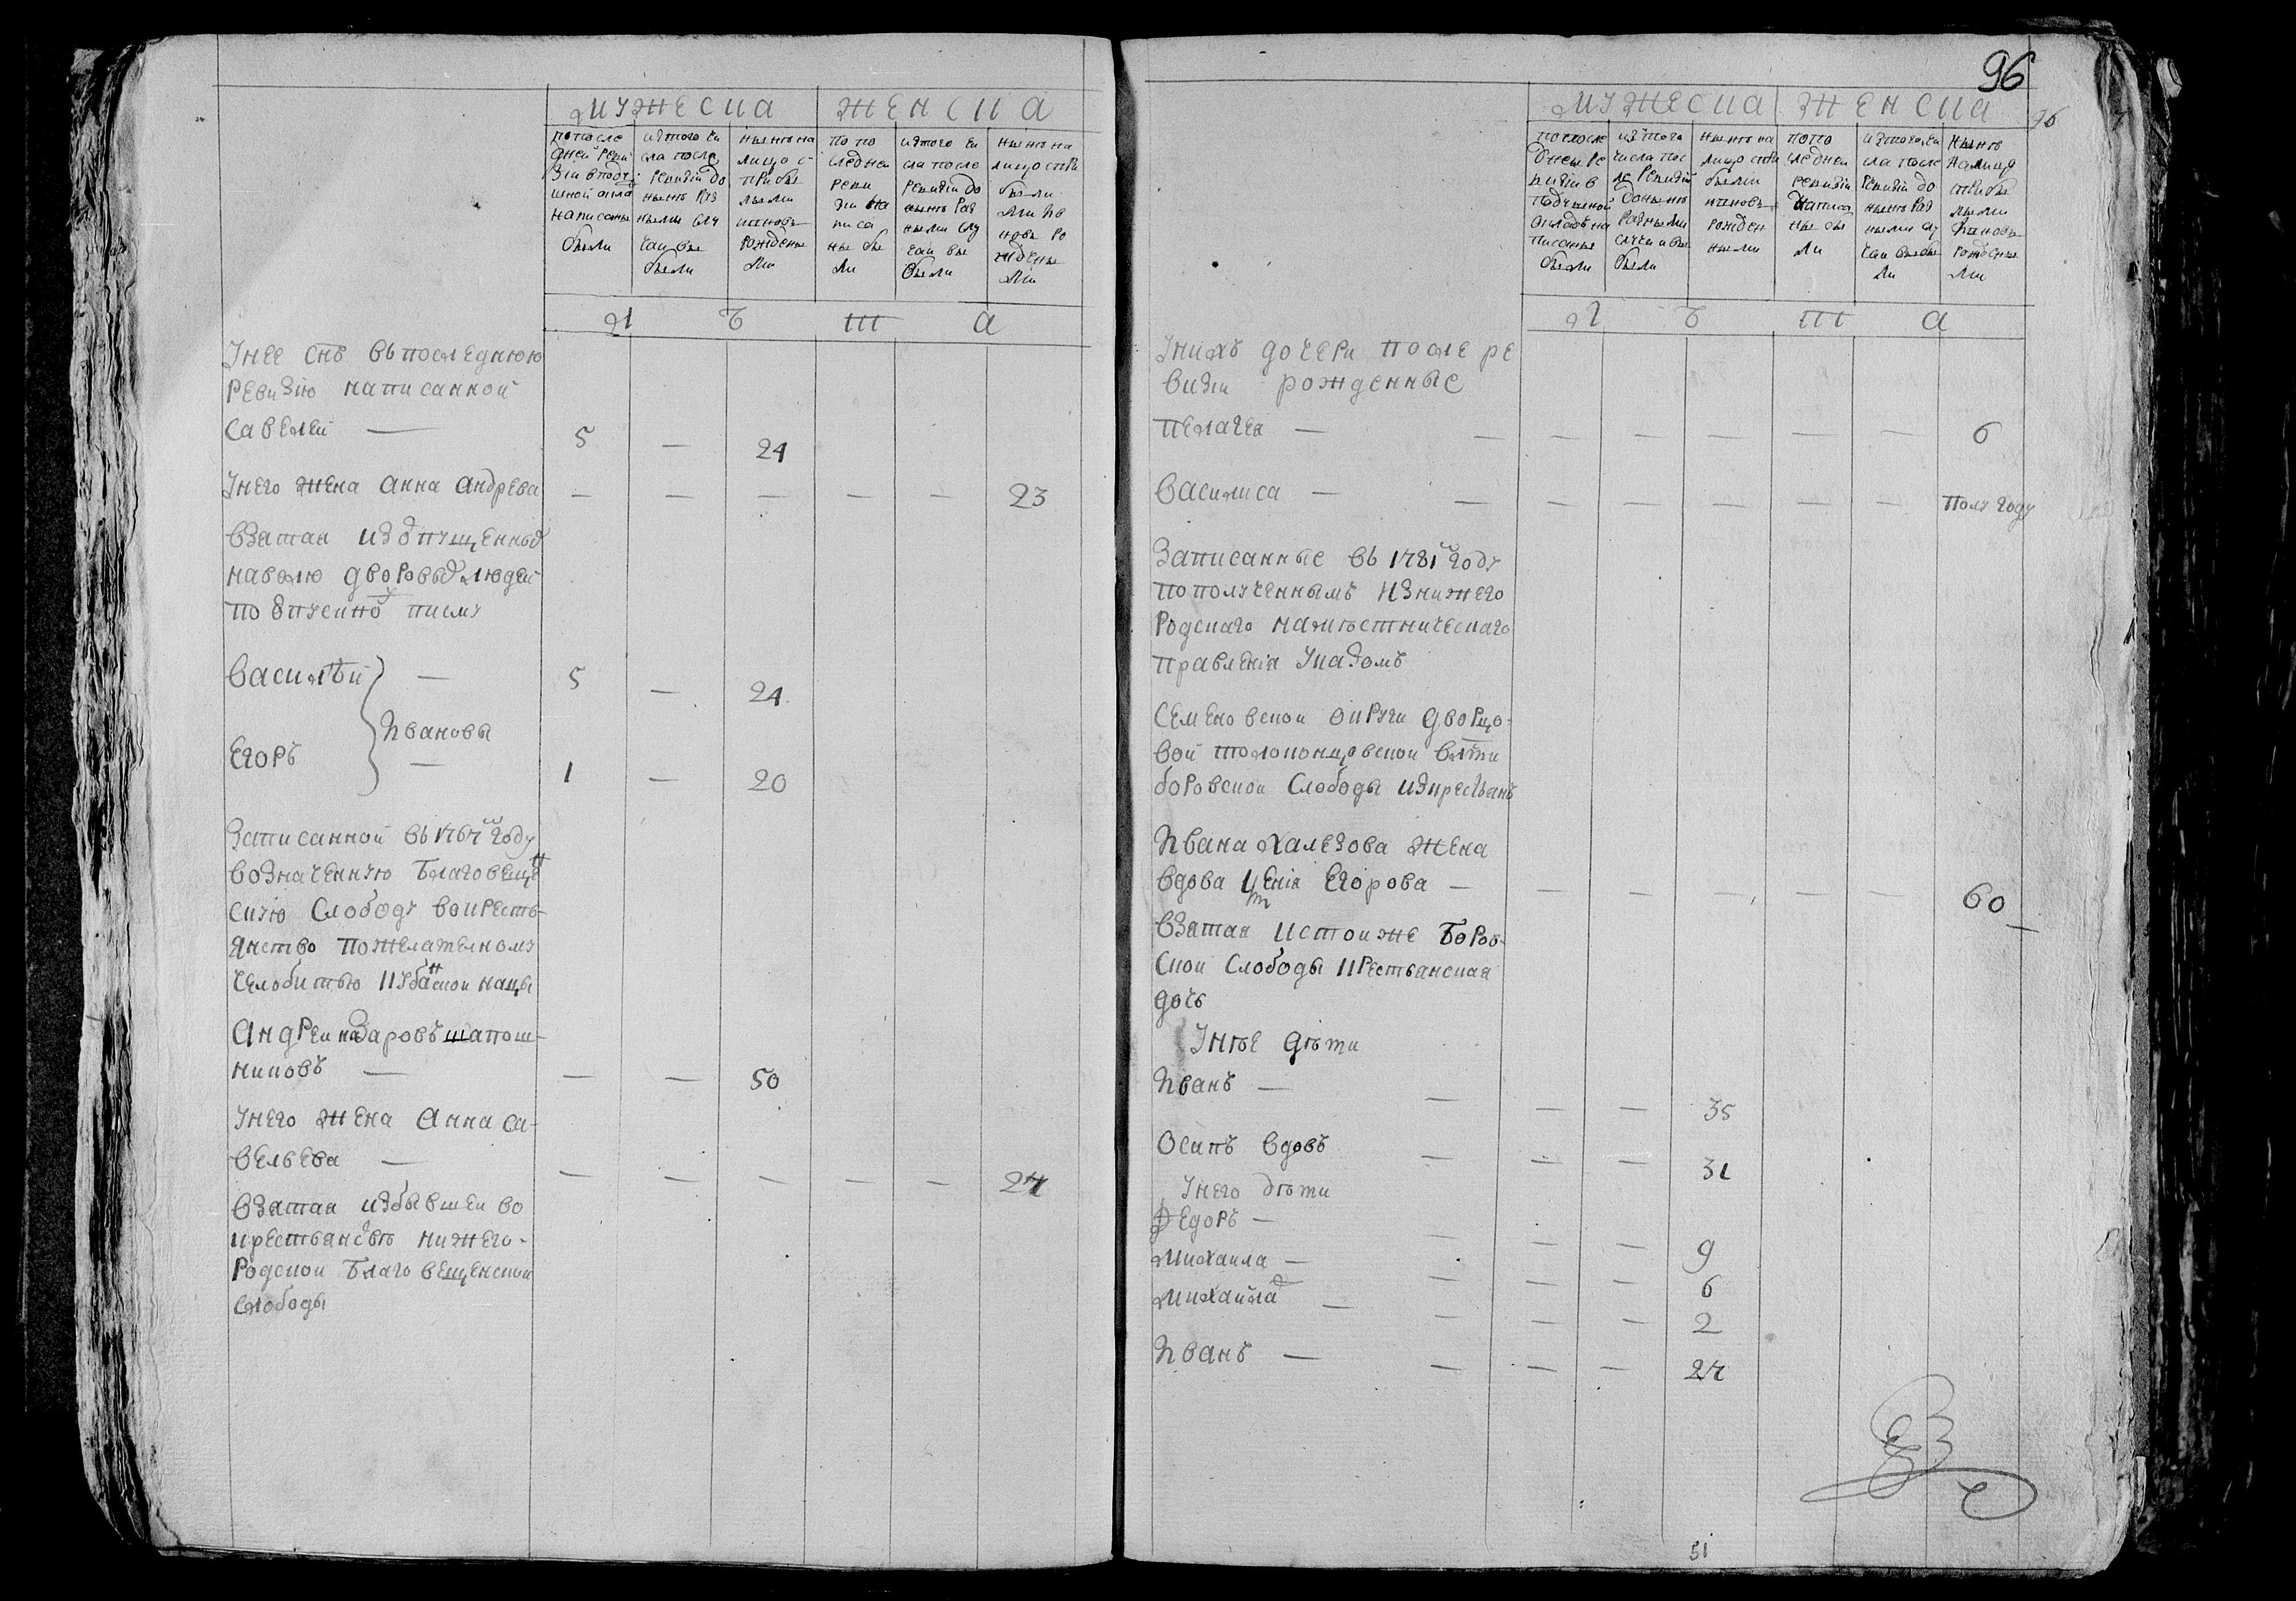 МУЖЕСКА
ЖЕНСКА
по после
дней реви
зіи в поду
шной окла
написаны
были
из того чи
сла после
ревизіи до
нынѣ раз
ными слу
чаи вы
были
нынѣ на
лицо с
при бы
лыми
и новь
рождены
ми
по по
следней
реви
зіи на
писа
ны бы
ли
из того чи
сла после
ревизіи до
нынѣ раз
ными слу
чаи вы
были
нынѣ на
лицо с при
былы
ми и но
новь ро
ждены
ми
Л Ѣ Т А
У нее снъ въ последнюю
ревизію написанной
Савелей — 5 — 24
У него жена Анна Андрева — — — — — 23
взятая из отпущенных
на волю дворовых людей
по отпускно писму
Василѣй — 5 — 24
Ивановы
Егоръ — 1 — 20
Записанной въ 1767м году
во значенную Благовещен
скую слободу во кресть-
янство по желателному
челобитью кубанской нацы
Андреи Назаровъ шапош-
никовъ — — — 50
У него жена Анна Са-
вельева — — — — — — 27
взятая из бывшеи во
крестьянствѣ нижего-
родской Благовещенскои
слободы
96
76
МУЖЕСКА
ЖЕНСКА
по после
днеи ре
визіи в
подушной
окладъ на
писаны
были
из того
числа пос
ле ревизіи
до нынѣ
разными
случаи вы
были
нынѣ на
лицо с при
былми
и новь
рожден
ными
по по
следней
ревизіи
написа
ны бы
ли
из того чи
сла после
ревизіи до
нынѣ раз
ными слу
чаи выбы
ли
нынѣ
на лицо
с прибы
лыми
и новь
рождены
ми
Л Ѣ Т А
У нихъ дочери после ре
визіи рожденные
Пелагея — — — — — — — 6
Василиса — — — — — — — полугоду
Записанные въ 1781м году
по полученнымъ из нижего
родскаго намѣстническаго
правленія указомъ
Семеновской округи дворцо-
вой толоконцовской влсти
боровской слободы из крестьянъ
Ивана Халезова жена
вдова Устенія Егорова — — — — — — 60
взятая ис тои же Боров-
скои слободы крестьянская
дочь
У нѣе дѣти
Иванъ — — — — 35
Осипъ вдовъ — — — 31
У него дѣти
Федоръ — — — — 9
Михаила — — — — 6
Михайла — — — — 2
Иванъ — — — — 27
51